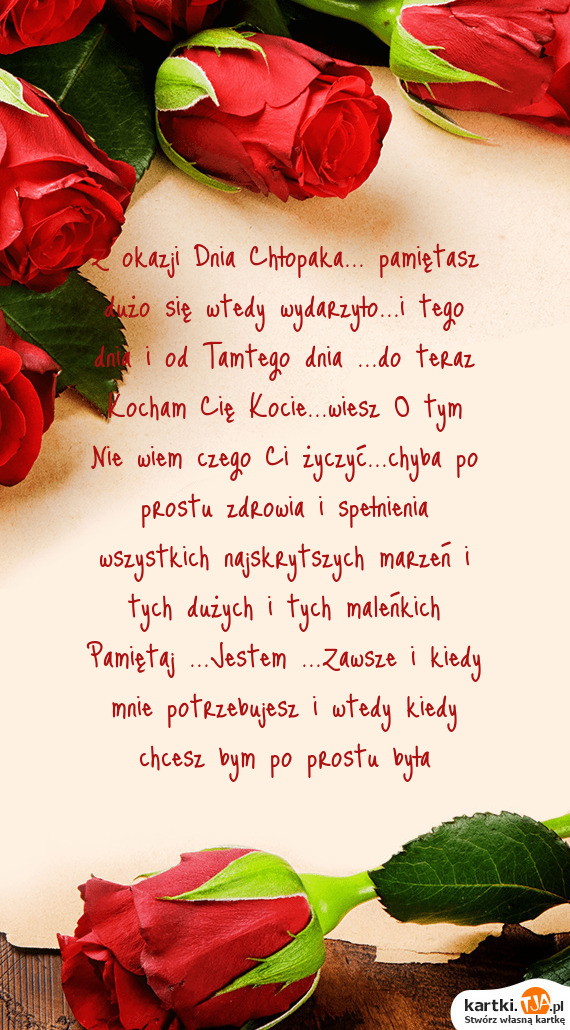 Z okazji Dnia Chłopaka... pamiętasz
dużo się wtedy wydarzyło...i tego
dnia i od Tamtego dnia ...do teraz
Kocham Cię Kocie...wiesz O tym
Nie wiem czego Ci życzyć...chyba po
prostu zdrowia i spełnienia
wszystkich najskrytszych marzeń i
tych dużych i tych maleńkich
Pamiętaj ...Jestem ...Zawsze i kiedy
mnie potrzebujesz i wtedy kiedy
chcesz bym po prostu była
kartki.TJA.pl
Stwórz własną kartkę